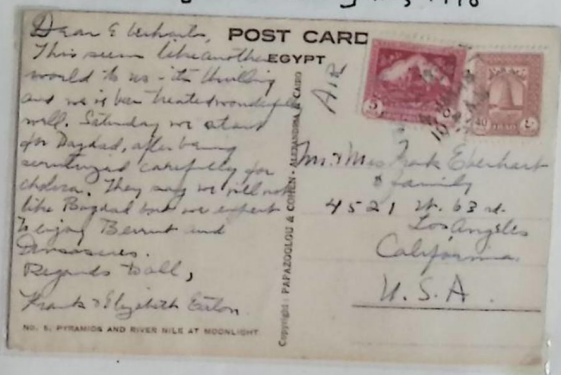 POST CARD
EGYPT
AIR
Dear Eberharts,
This seems like another
world to us - its thrilling
and we've been treated wonderfully
well. Saturday we start
for Bagdad, after being
scrutinized carefully for
cholera. They say we will not
like Bagdad but we expect
to enjoy Beirut and
Damascus.
Regards to all,
Frank & Elizabeth Eaton.
NO. 5. PYRAMIDS AND RIVER NILE AT MOONLIGHT.
Copyright: PAPAZOGLOU & COHEN - ALEXANDRIA & CAIRO
Mr. & Mrs Frank Eberhart
& family
4521 W. 63 rd.
Los Angeles
California.
U.S.A.
5
40